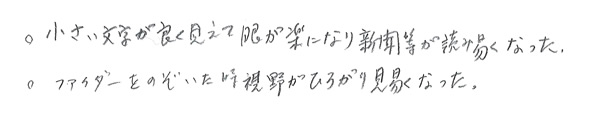 ○ 小さい文字が良く見えて眼が楽になり新聞等が読み易くなった.
○ ファイダーをのぞいた時視野がひろがり見易くなった。